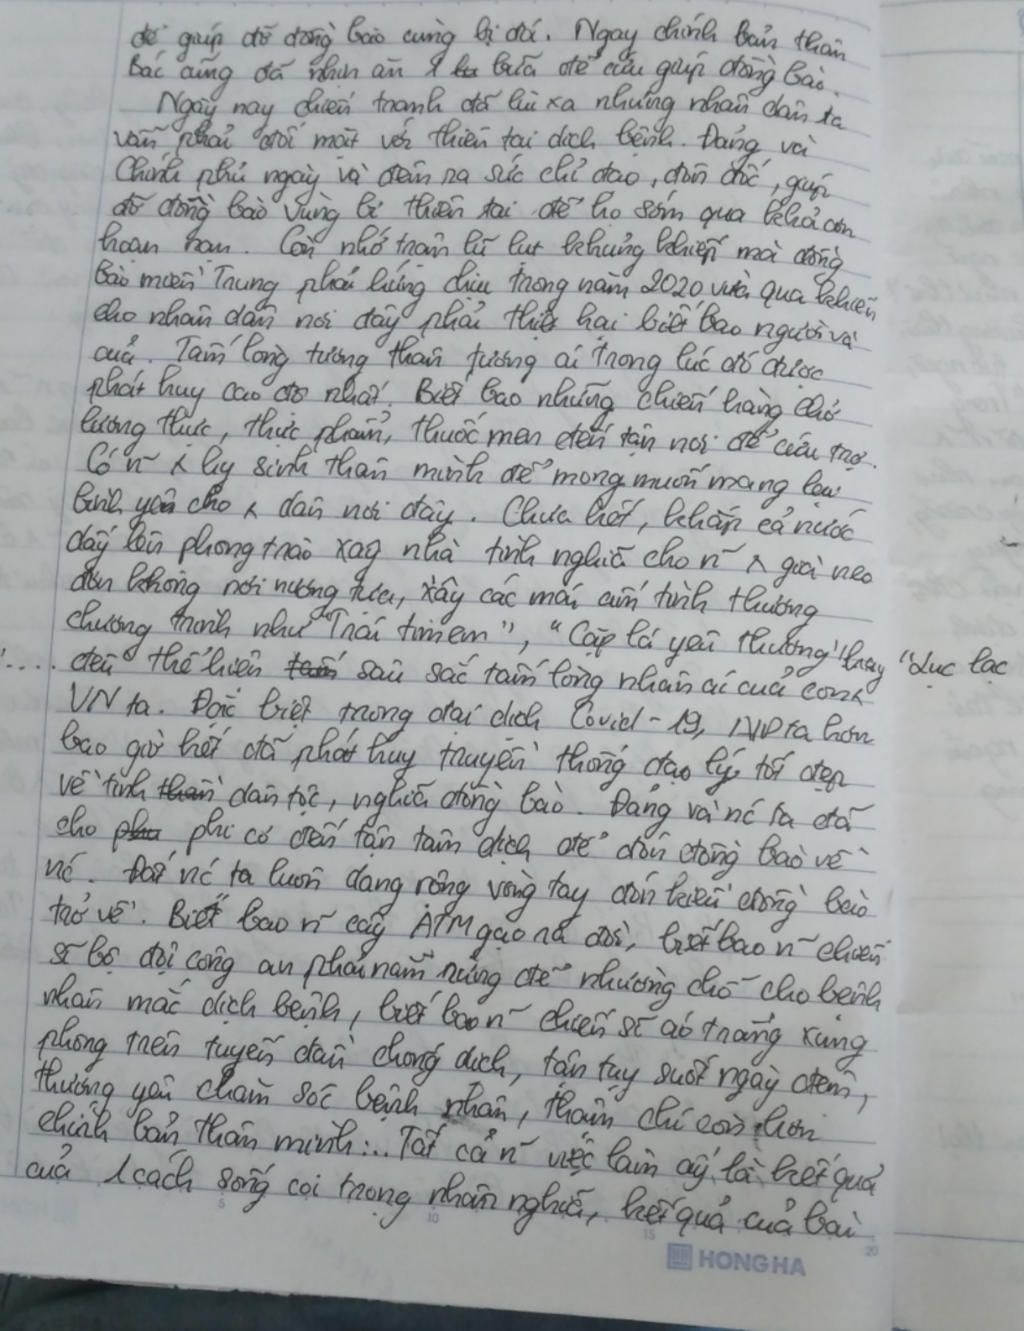 để giúp đỡ đồng bào cùng bị đói. Ngay chính bản thân
Bác cũng đã nhịn ăn 1 bữa để cứu giúp đồng bào.
Ngày nay chiến tranh đã lùi xa nhưng nhân dân ta
vẫn phải đối mặt với thiên tai dịch bệnh. Đảng và
Chính phủ ngày và đêm ra sức chỉ đạo, đôn đốc, giúp
đỡ đồng bào vùng bị thiên tai để họ sớm qua khỏi cơn
hoạn nạn. Còn nhớ trận lũ lụt khủng khiếp mà đồng
bào miền Trung phải hứng chịu trong năm 2020 vừa qua khiến
cho nhân dân nơi đây phải thiệt hại biết bao người và
của. Tấm lòng tương thân tương ái trong lúc đó được
phát huy cao độ nhất. Biết bao những chiến hàng chở
lương thực, thực phẩm, thuốc men đến tận nơi để cứu trợ.
Có n~ x hy sinh thân mình để mong muốn mang lại
bình yên cho x dân nơi đây. Chưa hết, khắp cả nước
dấy lên phong trào xag nhà tình nghĩa cho n~ x già neo
đơn không nơi nương tựa, xây các mái ấm tình thương
chương trình như "Trái tim em", "Cặp lá yêu thương" hay "Lục lạc
".... đều thể hiện sâu sắc tấm lòng nhân ái của con x
VN ta. Đặc biệt trong đại dịch Covid-19, ta hơn
bao giờ hết đã phát huy truyền thống đạo lý tốt đẹp
về tình dân tộc, nghĩa đồng bào. Đảng và nc ta đã
cho phi cơ đến tận tâm dịch để đón đồng bào về
nc. Đất nc ta luôn dang rộng vòng tay đón kiều đồng bào
trở về. Biết bao n~ cây ATM gạo ra đời, biết bao n~ chiến
sĩ bộ đội công an phải nằm rừng để nhường chỗ cho bệnh
nhân mắc dịch bệnh, biết bao n~ chiến sĩ áo trắng xung
phong trên tuyến đầu chống dịch, tận tụy suốt ngày đêm,
thương yêu chăm sóc bệnh nhân, thậm chí còn hơn
chính bản thân mình... Tất cả n~ việc làm ấy là kết quả
của 1 cách sống coi trọng nhân nghĩa, kết quả của bài
5 10 15 20
HONG HA